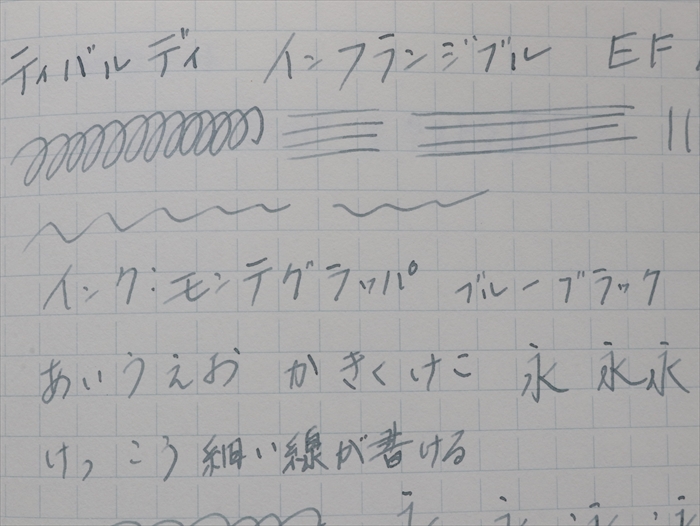 ティバルディ インフランジブル EF
インク:モンテグラッパ ブルーブラック
あいうえお かきくけこ 永 永永
けっこう細い線が書ける